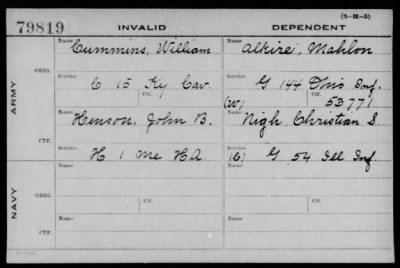 (3-H-5)
79819 INVALID DEPENDENT
Name Cummins, William Name Alkire, Mahlon
ORIG.
Service C 15 Ky Cav. Service G 144 Ohio Inf.
Ctf. (W) Ctf. 53771
ARMY
Name Henson, John B. Name Nigh, Christian S.
CTF.
Service H 1 Me H.A. Service (C) G 54 Ill Inf.
Name Name
ORIG.
Ctf. Ctf.
NAVY
Name Name
CTF.